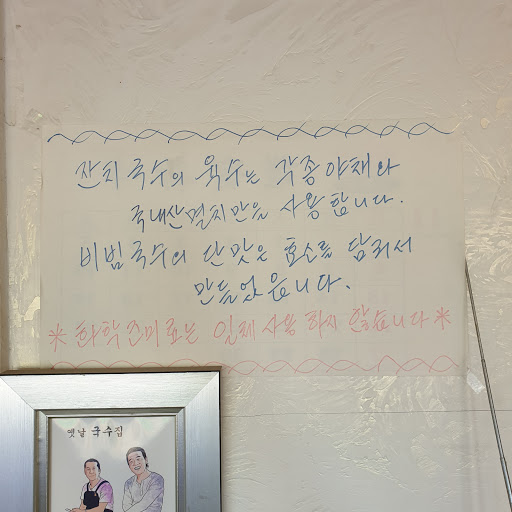 잔치국수의 육수는 각종야채와
국내산멸치만을 사용합니다.
비빔국수의 단맛은 효소를 담궈서
만들었읍니다.
※ 화학조미료는 일체 사용하지 않습니다 ※
옛날 국수집